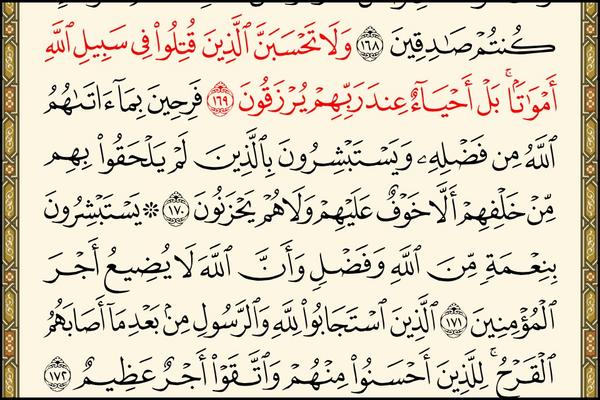 كُنتُمْ صَـٰدِقِينَ ١٦٨ وَلَا تَحْسَبَنَّ ٱلَّذِينَ قُتِلُوا۟ فِى سَبِيلِ ٱللَّهِ
أَمْوَٰتًۢا ۚ بَلْ أَحْيَآءٌ عِندَ رَبِّهِمْ يُرْزَقُونَ ١٦٩ فَرِحِينَ بِمَآ ءَاتَىٰهُمُ
ٱللَّهُ مِن فَضْلِهِۦ وَيَسْتَبْشِرُونَ بِٱلَّذِينَ لَمْ يَلْحَقُوا۟ بِهِم
مِّنْ خَلْفِهِمْ أَلَّا خَوْفٌ عَلَيْهِمْ وَلَا هُمْ يَحْزَنُونَ ١٧٠ ۞ يَسْتَبْشِرُونَ
بِنِعْمَةٍ مِّنَ ٱللَّهِ وَفَضْلٍ وَأَنَّ ٱللَّهَ لَا يُضِيعُ أَجْرَ
ٱلْمُؤْمِنِينَ ١٧١ ٱلَّذِينَ ٱسْتَجَابُوا۟ لِلَّهِ وَٱلرَّسُولِ مِنۢ بَعْدِ مَآ أَصَابَهُمُ
ٱلْقَرْحُ ۚ لِلَّذِينَ أَحْسَنُوا۟ مِنْهُمْ وَٱتَّقَوْا۟ أَجْرٌ عَظِيمٌ ١٧٢